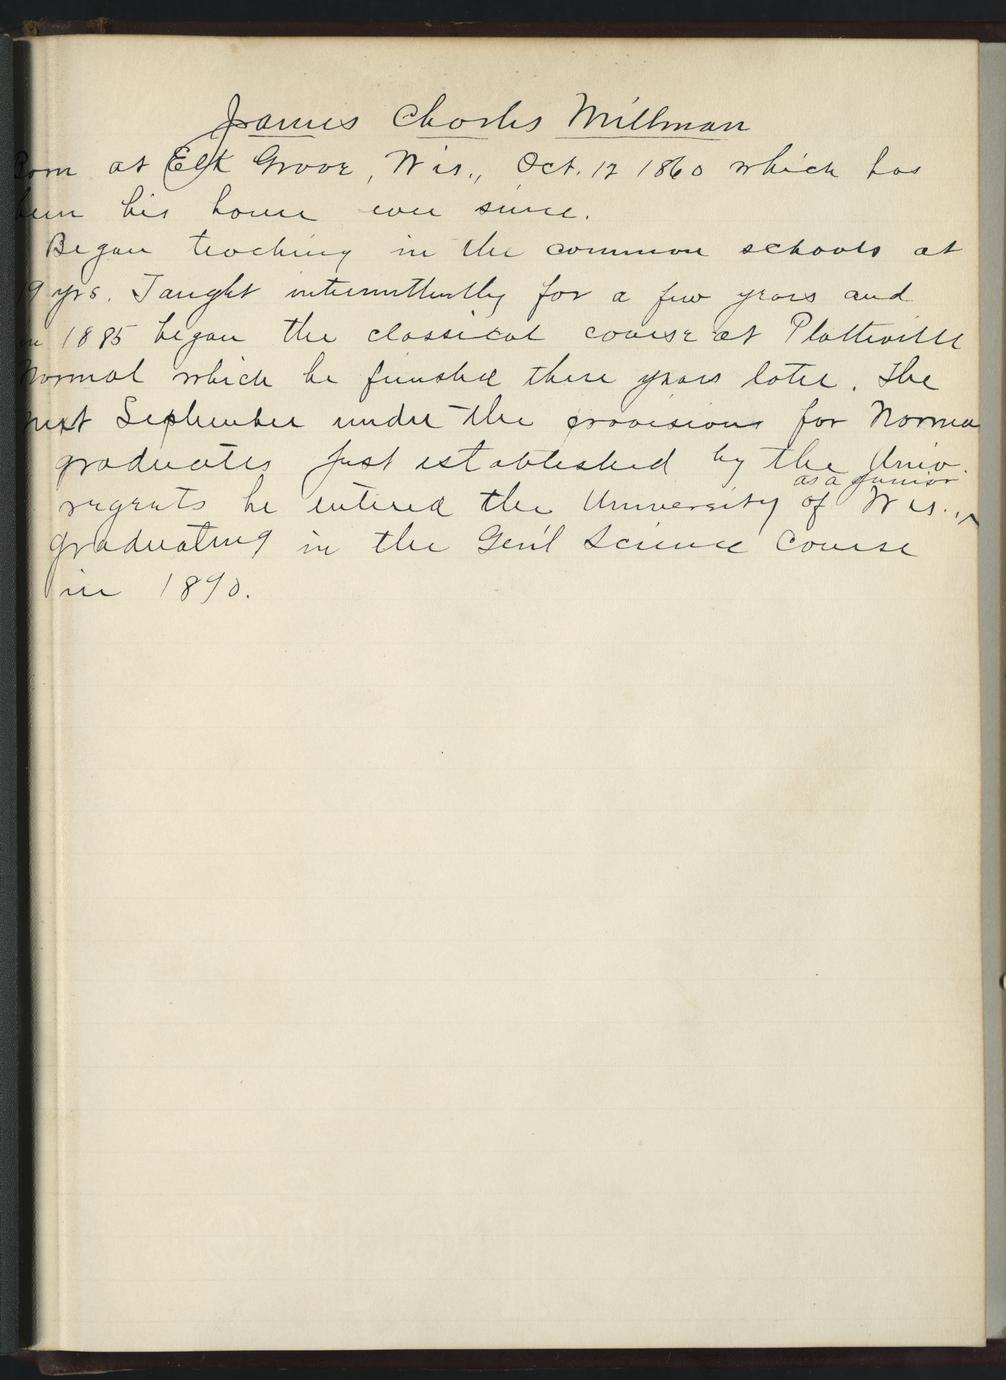 James Charles Millman
Born at Elk Grove, Wis., Oct. 12 1860 which has
been his home ever since.
Began teaching in the common schools at
19 yrs. Taught intermittently for a few years and
in 1885 began the classical course at Platteville
Normal which he finished three years later. The
next September under the provisions for Norma
graduates just established by the Univ.
as a junior
regents he entered the University of Wis.,
graduating in the Gen'l Science Course
in 1890.